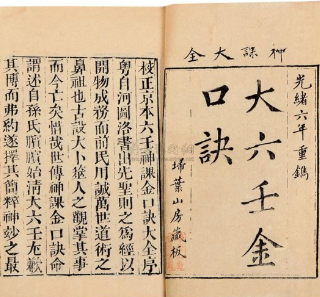 神課大全
光緒六年重鐫
大六壬金
口訣
掃葉山房藏板
校正京本六壬神課金口訣大全序
粵自河圖洛書出先聖則之為經以
開物成務而前民用誠萬世道術之
鼻祖也古設大卜人之觀掌其事
而今亡矣惜哉世傳神課金口訣命
謂述自孫氏臏臏始清大六壬尤歉
其博而弗約遂擇其簡粹神妙之最